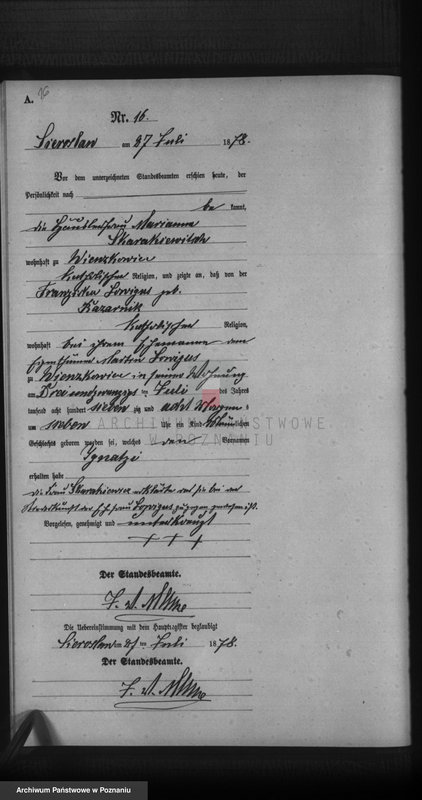 A. 16
Nr. 16.
Sieroslaw am 27 Juli 1878.
Vor dem unterzeichneten Standesbeamten erschien heute, der
Persönlichkeit nach
be kannt,
die Häuslerfrau Marianna
Skarakiewitch
wohnhaft zu Wienzkowice
katholischer Religion, und zeigte an, daß von der
Franziska geb.
Kazarnik
katholischen Religion,
wohnhaft bei ihrem Ehemanne dem
Eigenthümer Martin
zu Wienzkowice in seiner Wohnung
am Drei und zwanzigsten Juli des Jahres
tausend acht hundert sieben zig und acht Morgens
um sieben Uhr ein Kind männlichen
Geschlechts geboren worden sei, welches den Vornamen
Ignatzi
erhalten habe
die Frau Skarakiewicz erklärte daß sie bei der
Niederkunft der Ehefrau zugegen gewesen ist.
Vorgelesen, genehmigt und unterkreuzt
+ + +
Der Standesbeamte.
Die Uebereinstimmung mit dem Hauptregister beglaubigt
Sieroslaw am 27 ten Juli 1878.
Der Standesbeamte.
ARCHIWUM PAŃSTWOWE
W POZNANIU
Archiwum Państwowe w Poznaniu